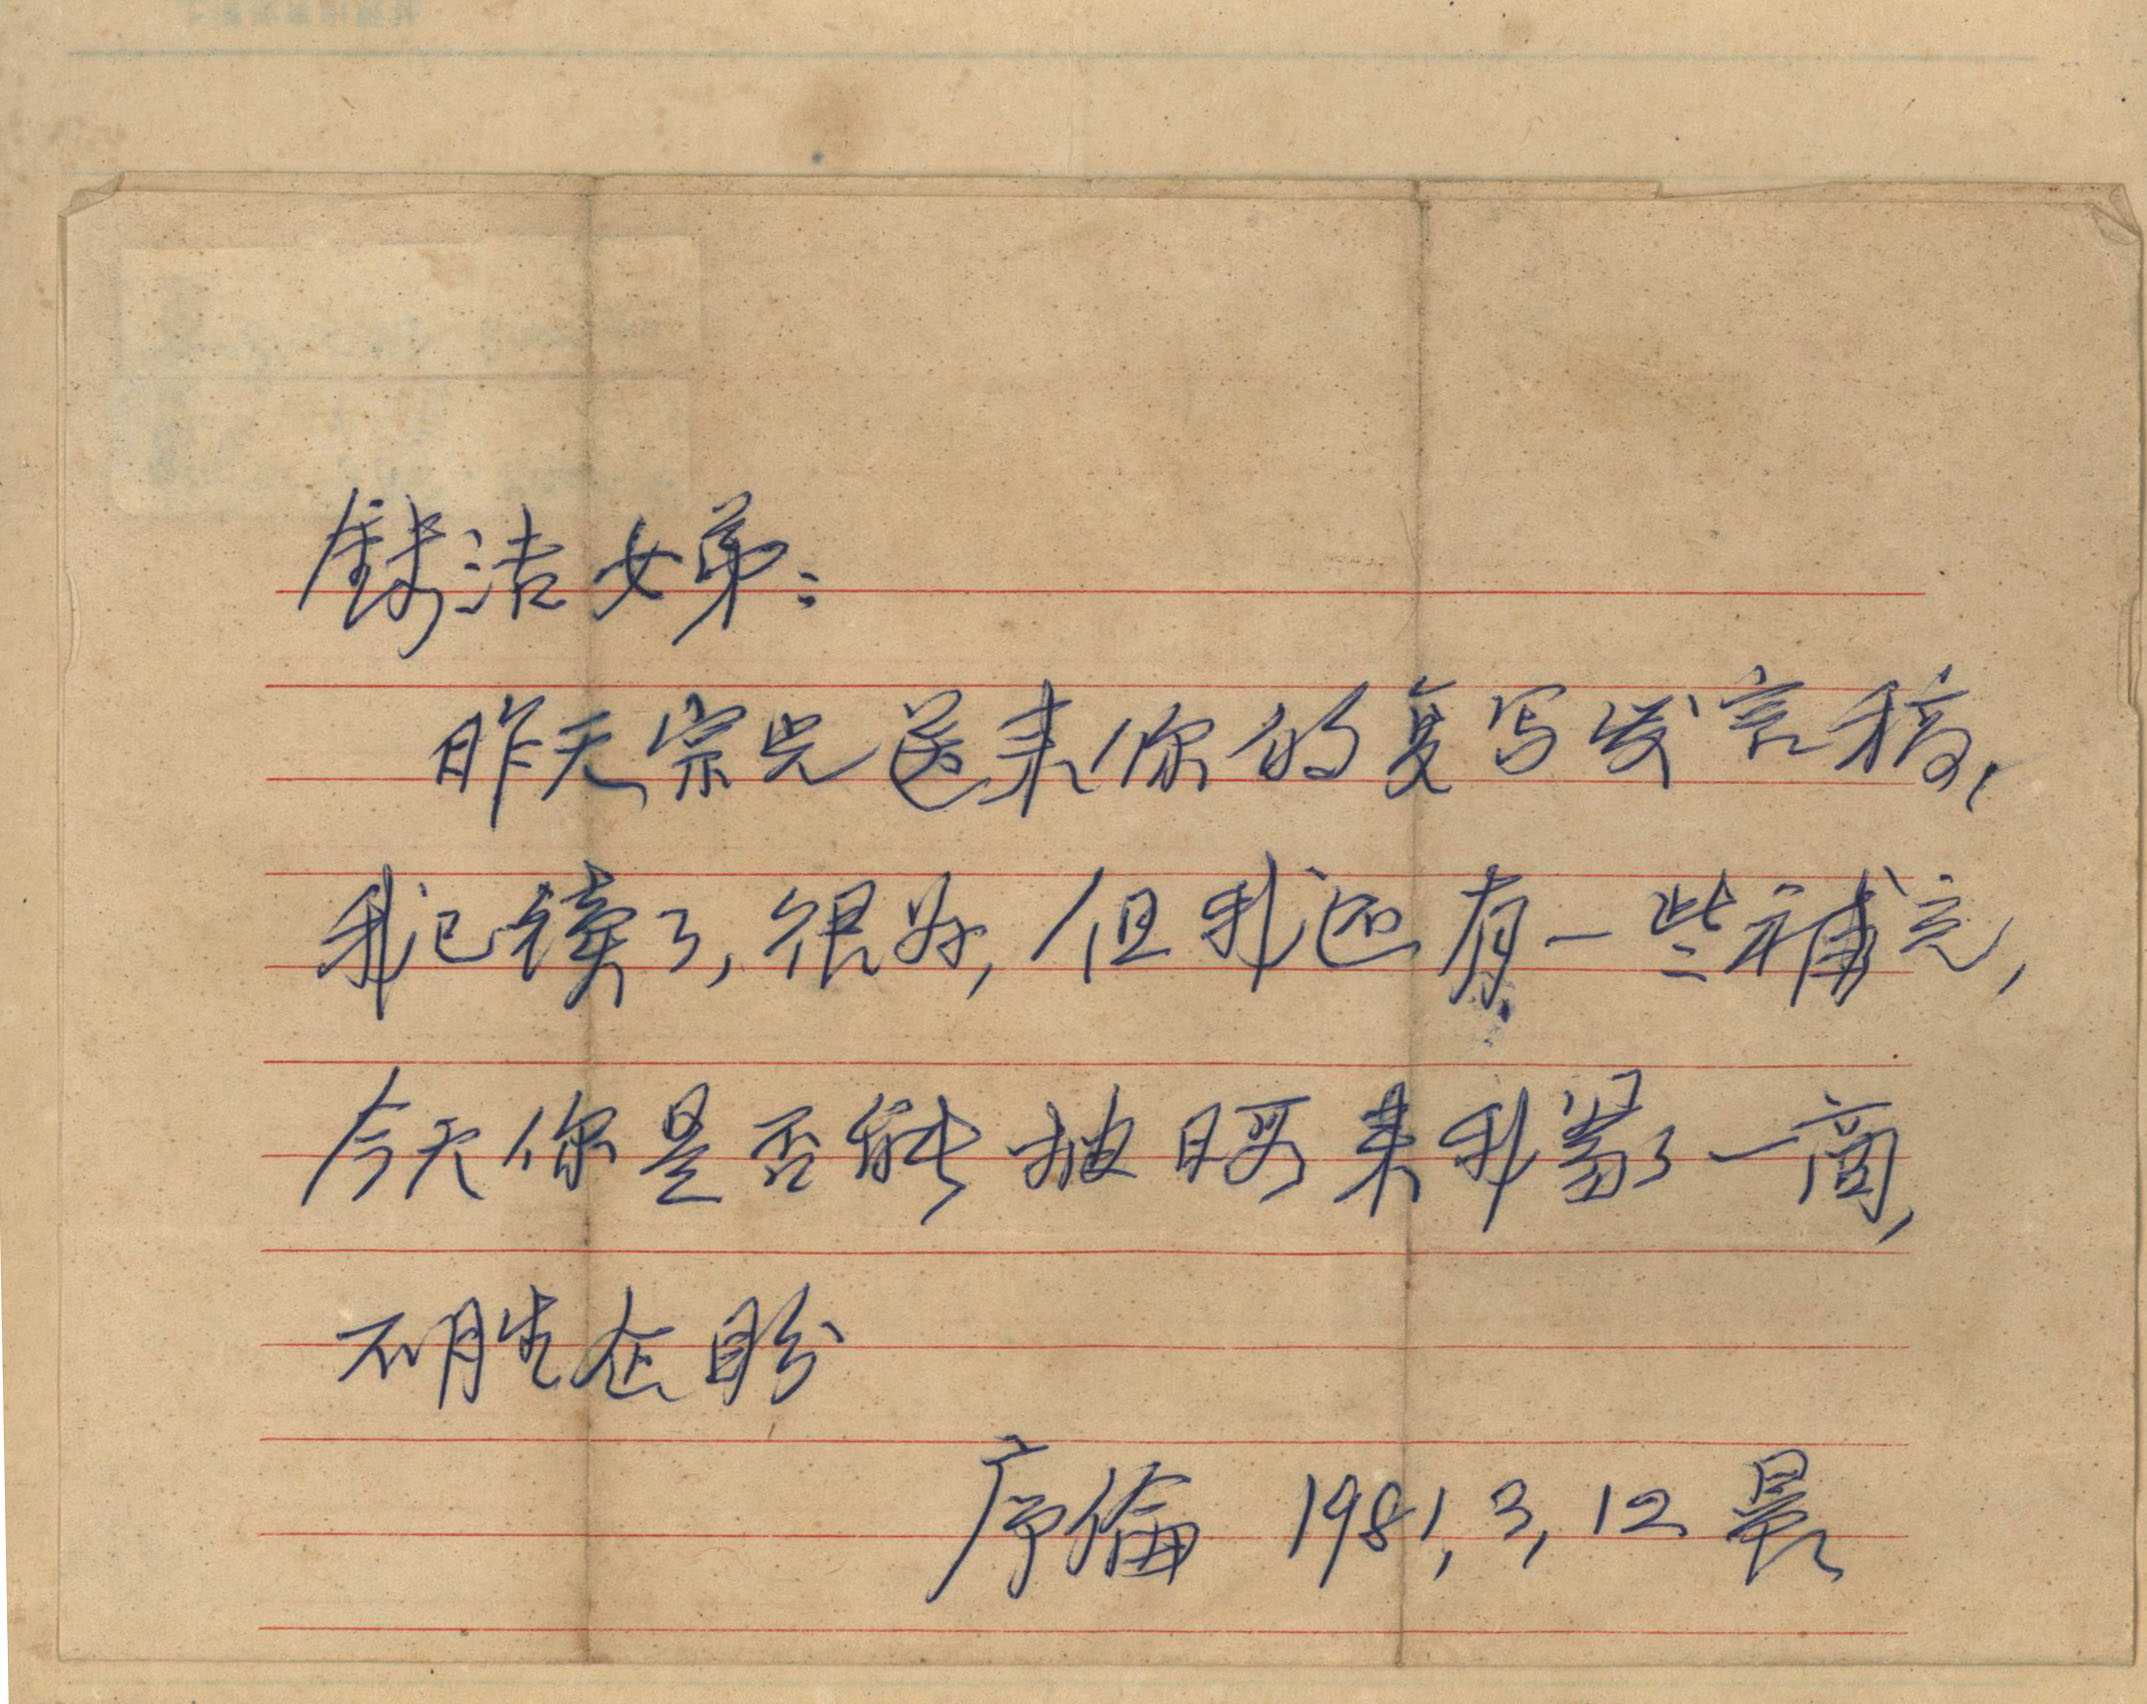 铸洁女弟：
昨天宗兄送来你的复写发言稿，
我已读了，很好，但我还有一些補充，
今天你是否能抽暇来我寓一商，
不勝企盼
序倫 1981,3,12 晨